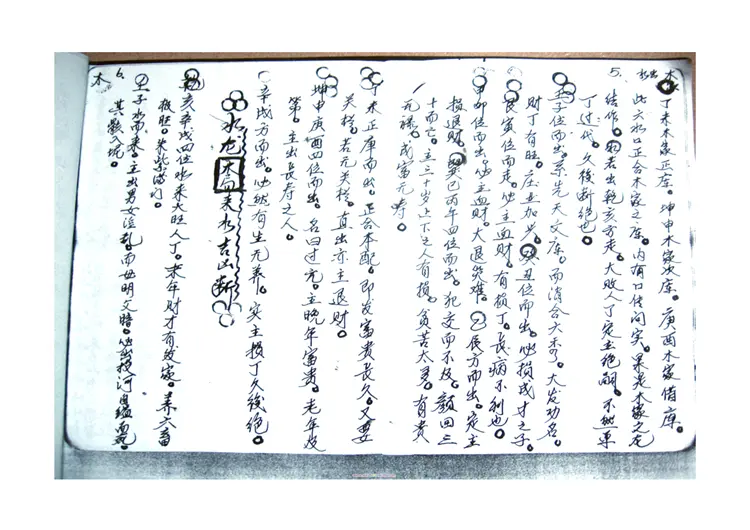 水出木
丁未木家正库。坤申木家汝库。庚酉木家借库。
5. 此六水口正合木家之库。内有口传问实。果是木家之龙
结作。水若出乾亥方走。大败人丁定主绝嗣。不然一单
丁过代。久后断绝也。
壬子位而出。系先天文库。而消合大不可。大发功名。
财丁有旺。庄业加兴。癸丑位而出。必损成才之子。
艮寅位而走。必主血财。有损丁。长病不利也。
甲卯位而出。必主血财。大退贫难。乙辰方而出。定主
损退财。巽巳丙午四位而出。犯交而不及。颜回三
十而亡。主三十岁上下之人有损。贫苦太多。有贵
无禄。或富无寿。
丁未正库而出。正合本配。即发富贵长久。又要
关栏。若无关栏。直出亦主退财。
坤申庚酉四位而出。名曰过宫。主晚年富贵。老年及
第。主出长寿之人。
辛戌方而出。必然有生无养。实主损丁久后绝。
水龙木局来水吉凶断
乾亥辛戌四位水来大旺人丁。来年财才有发家。养六畜
极旺。
6. 壬子水而来。主出男女淫乱。而母明父暗。必出投河自缢而死。
木
其影入坑。